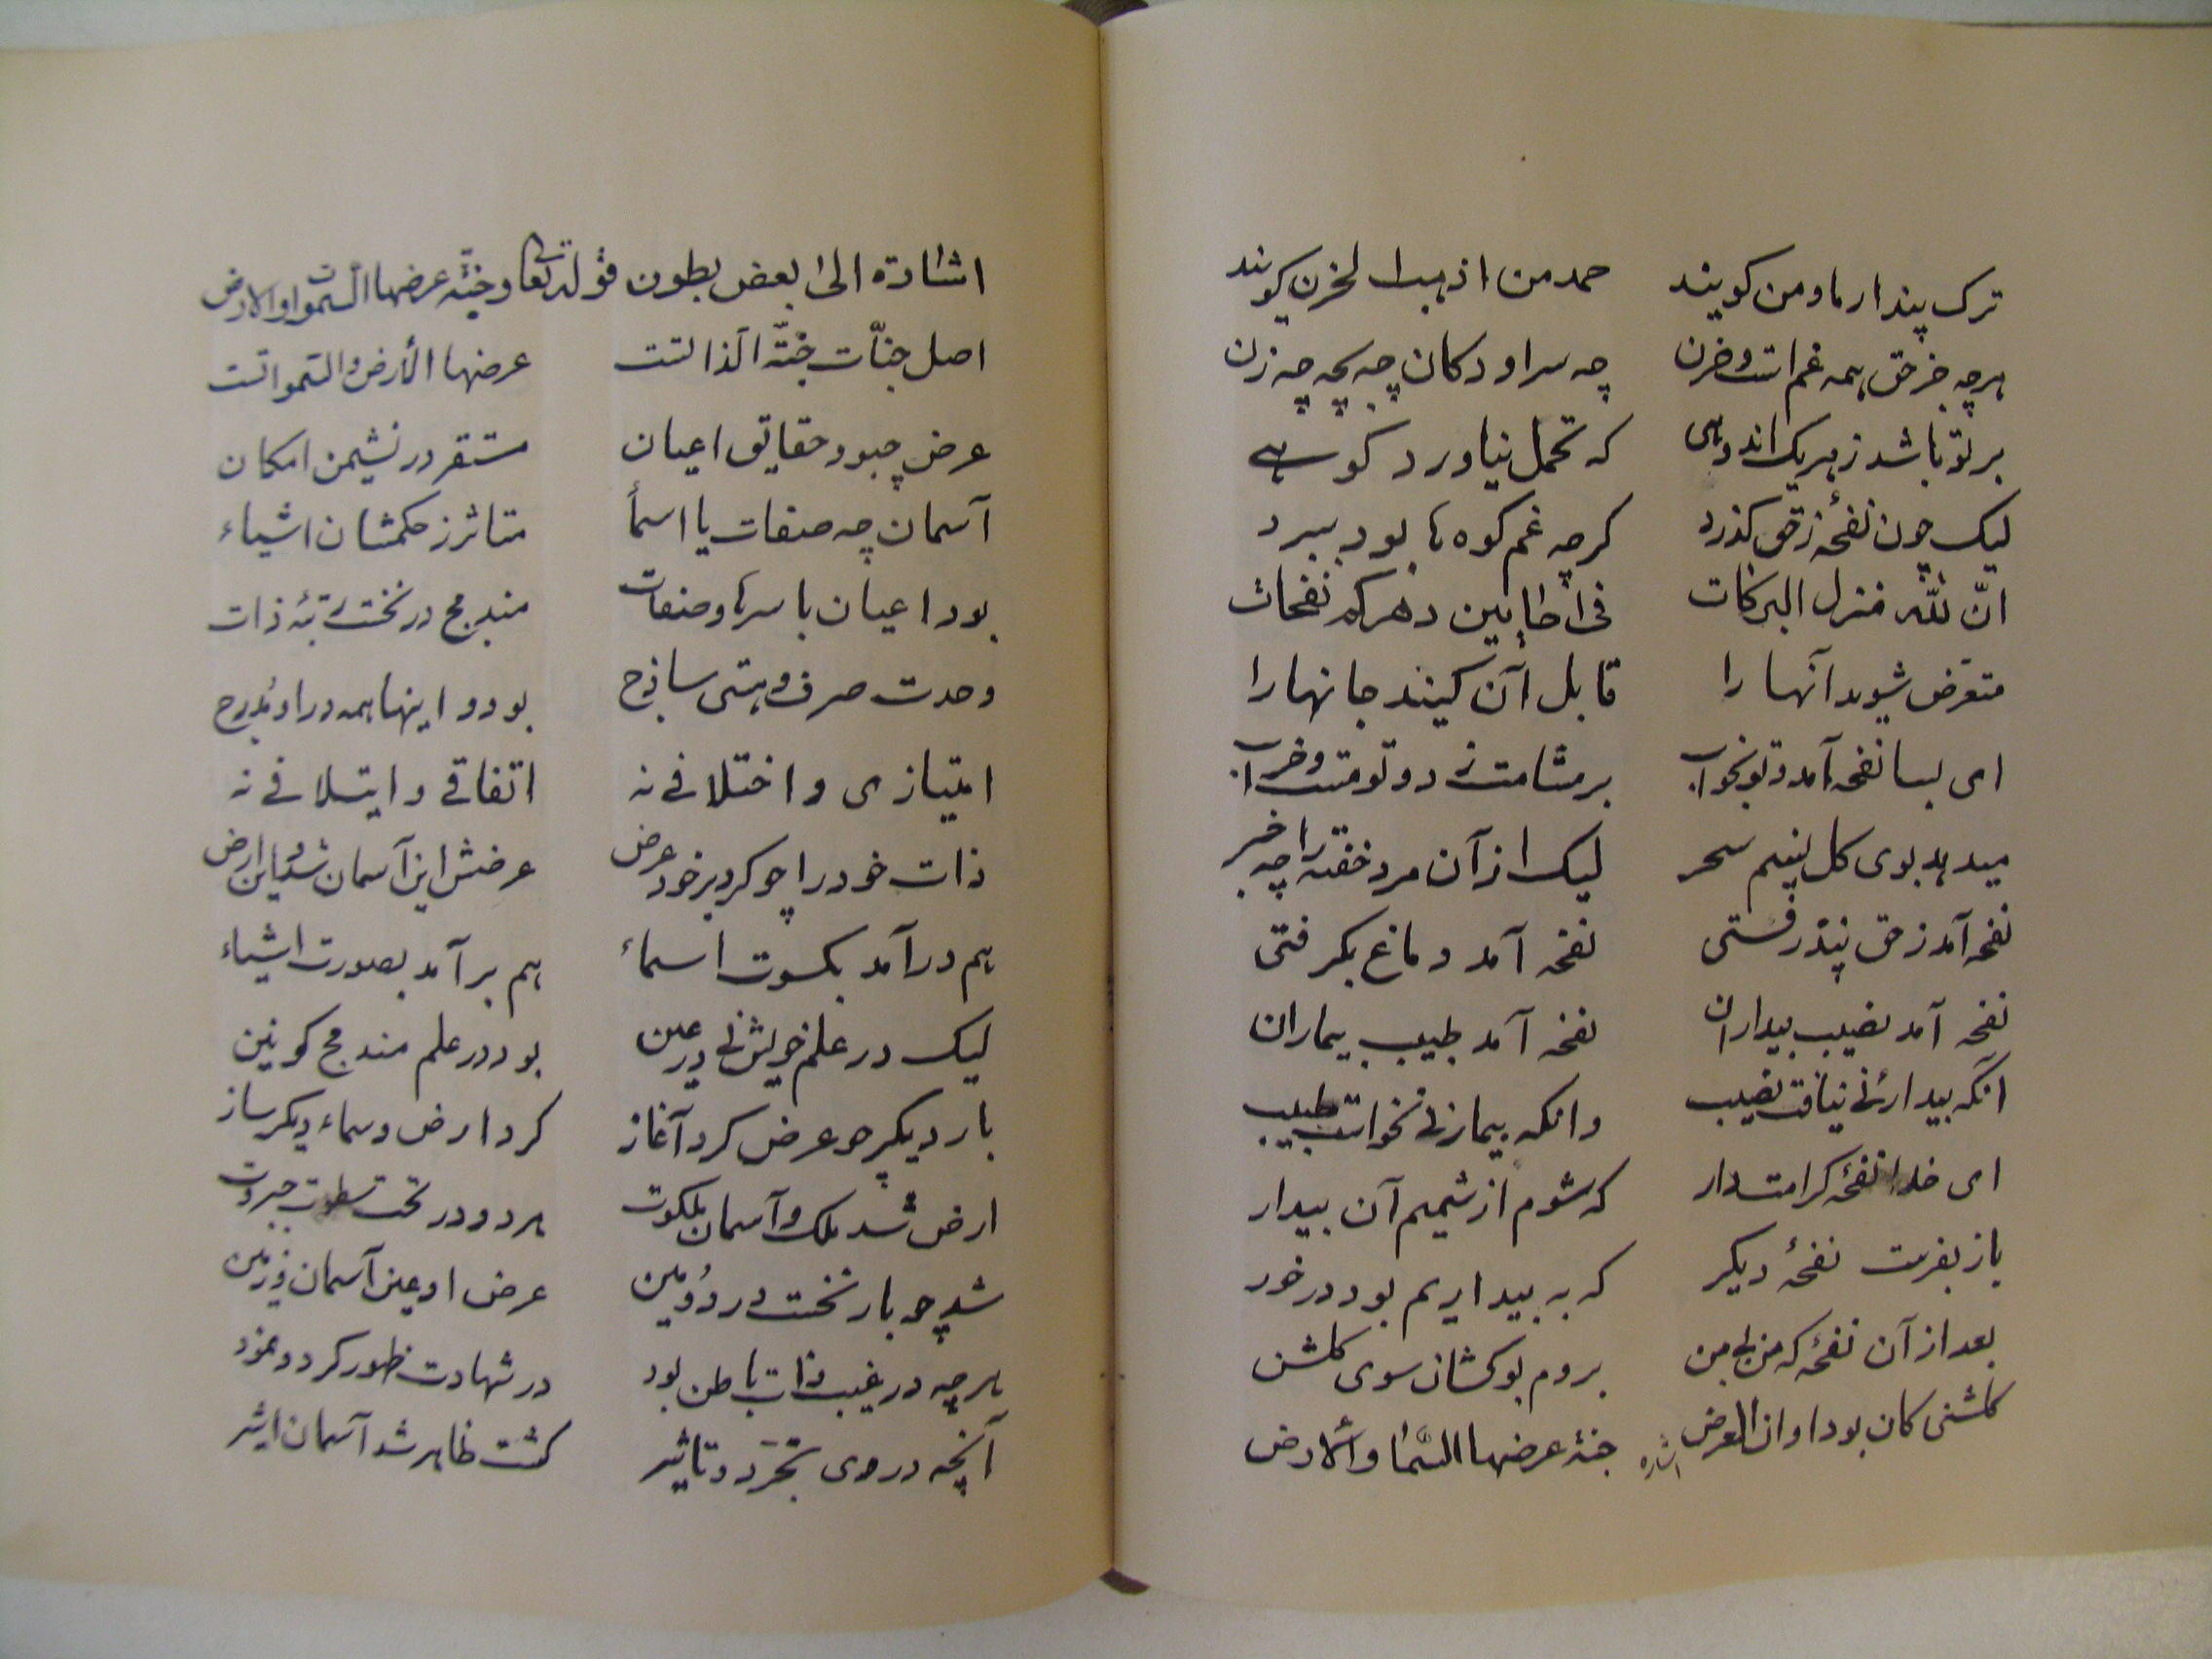 ترک پندار ما و من کویند حمد من اذهب الحزن کویند
هرچه جز حق همه غم است و حزن چه سرا و دکان چه بچه چه زن
بر تو باشد ز هر یک اندوهی که تحمل نیاورد کوهی
لیک چون نفحۀ ز حق کذرد کرچه غم کوه ها بود ببرد
انّ لله منزل البرکات فی احایین دهرکم نفحات
متعرض شوید آنها را قابل آن کنید جانها را
ای بسا نفحه آمد و تو بخواب بر مشامت زد و تو مست و خراب
میدهد بوی کل نسیم سحر لیک از آن مرد خفته را چه خبر
نفحه آمد ز حق پذرفتی نفحه آمد دماغ بکرفتی
نفحه آمد نصیب بیداران نفحه آمد طبیب بیماران
آنکه بیدار نی نیافت نصیب وانکه بیمار نی نخواست طبیب
ای خدا نفحۀ کرامت دار که شوم از شمیم آن بیدار
باز بفرست نفحۀ دیکر که به بیداریم بود درخور
بعد از آن نفحۀ که من بی من بروم بوکشان سوی کلشن
کلشنی کان بود اوان العرض جنة عرضها السما والارض
اشاره
اشارة الی بعض بطون قوله تعا وجنّة عرضها السموات والارض
اصل جنّات جنّة الذاتست عرضها الأرض والسمواتست
عرض چبود حقایق اعیان مستقر در نشیمن امکان
آسمان چه صفات یا اسمأ متاثر ز حکمشان اشیاء
بود اعیان باسرها و صفات مندمج در نخست رتبۀ ذات
وحدت صرف و هستی ساذج بود و اینها همه در او مُدرج
امتیازی و اختلافی نه اتفاقی و ایتلافی نه
ذات خود را چو کرد بر خود عرض عرضش این آسمان شد و این ارض
هم درآمد بکسوت اسماء هم برآمد بصورت اشیاء
لیک در علم خویش نی در عین بود در علم مندمج کونین
بار دیکر چو عرض کرد آغاز کرد ارض و سماء دیکر ساز
ارض شد ملک و آسمان ملکوت هر دو در تحت سطوت جبروت
شد چو بار نخست در دُومین عرض او عین آسمان و زمین
هرچه در غیب ذات باطن بود در شهادت ظهور کرد و نمود
آنچه در وی تجرّد و تاثیر کشت ظاهر شد آسمان اثیر